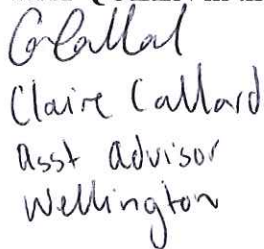 Claire Callard
asst advisor
Wellington